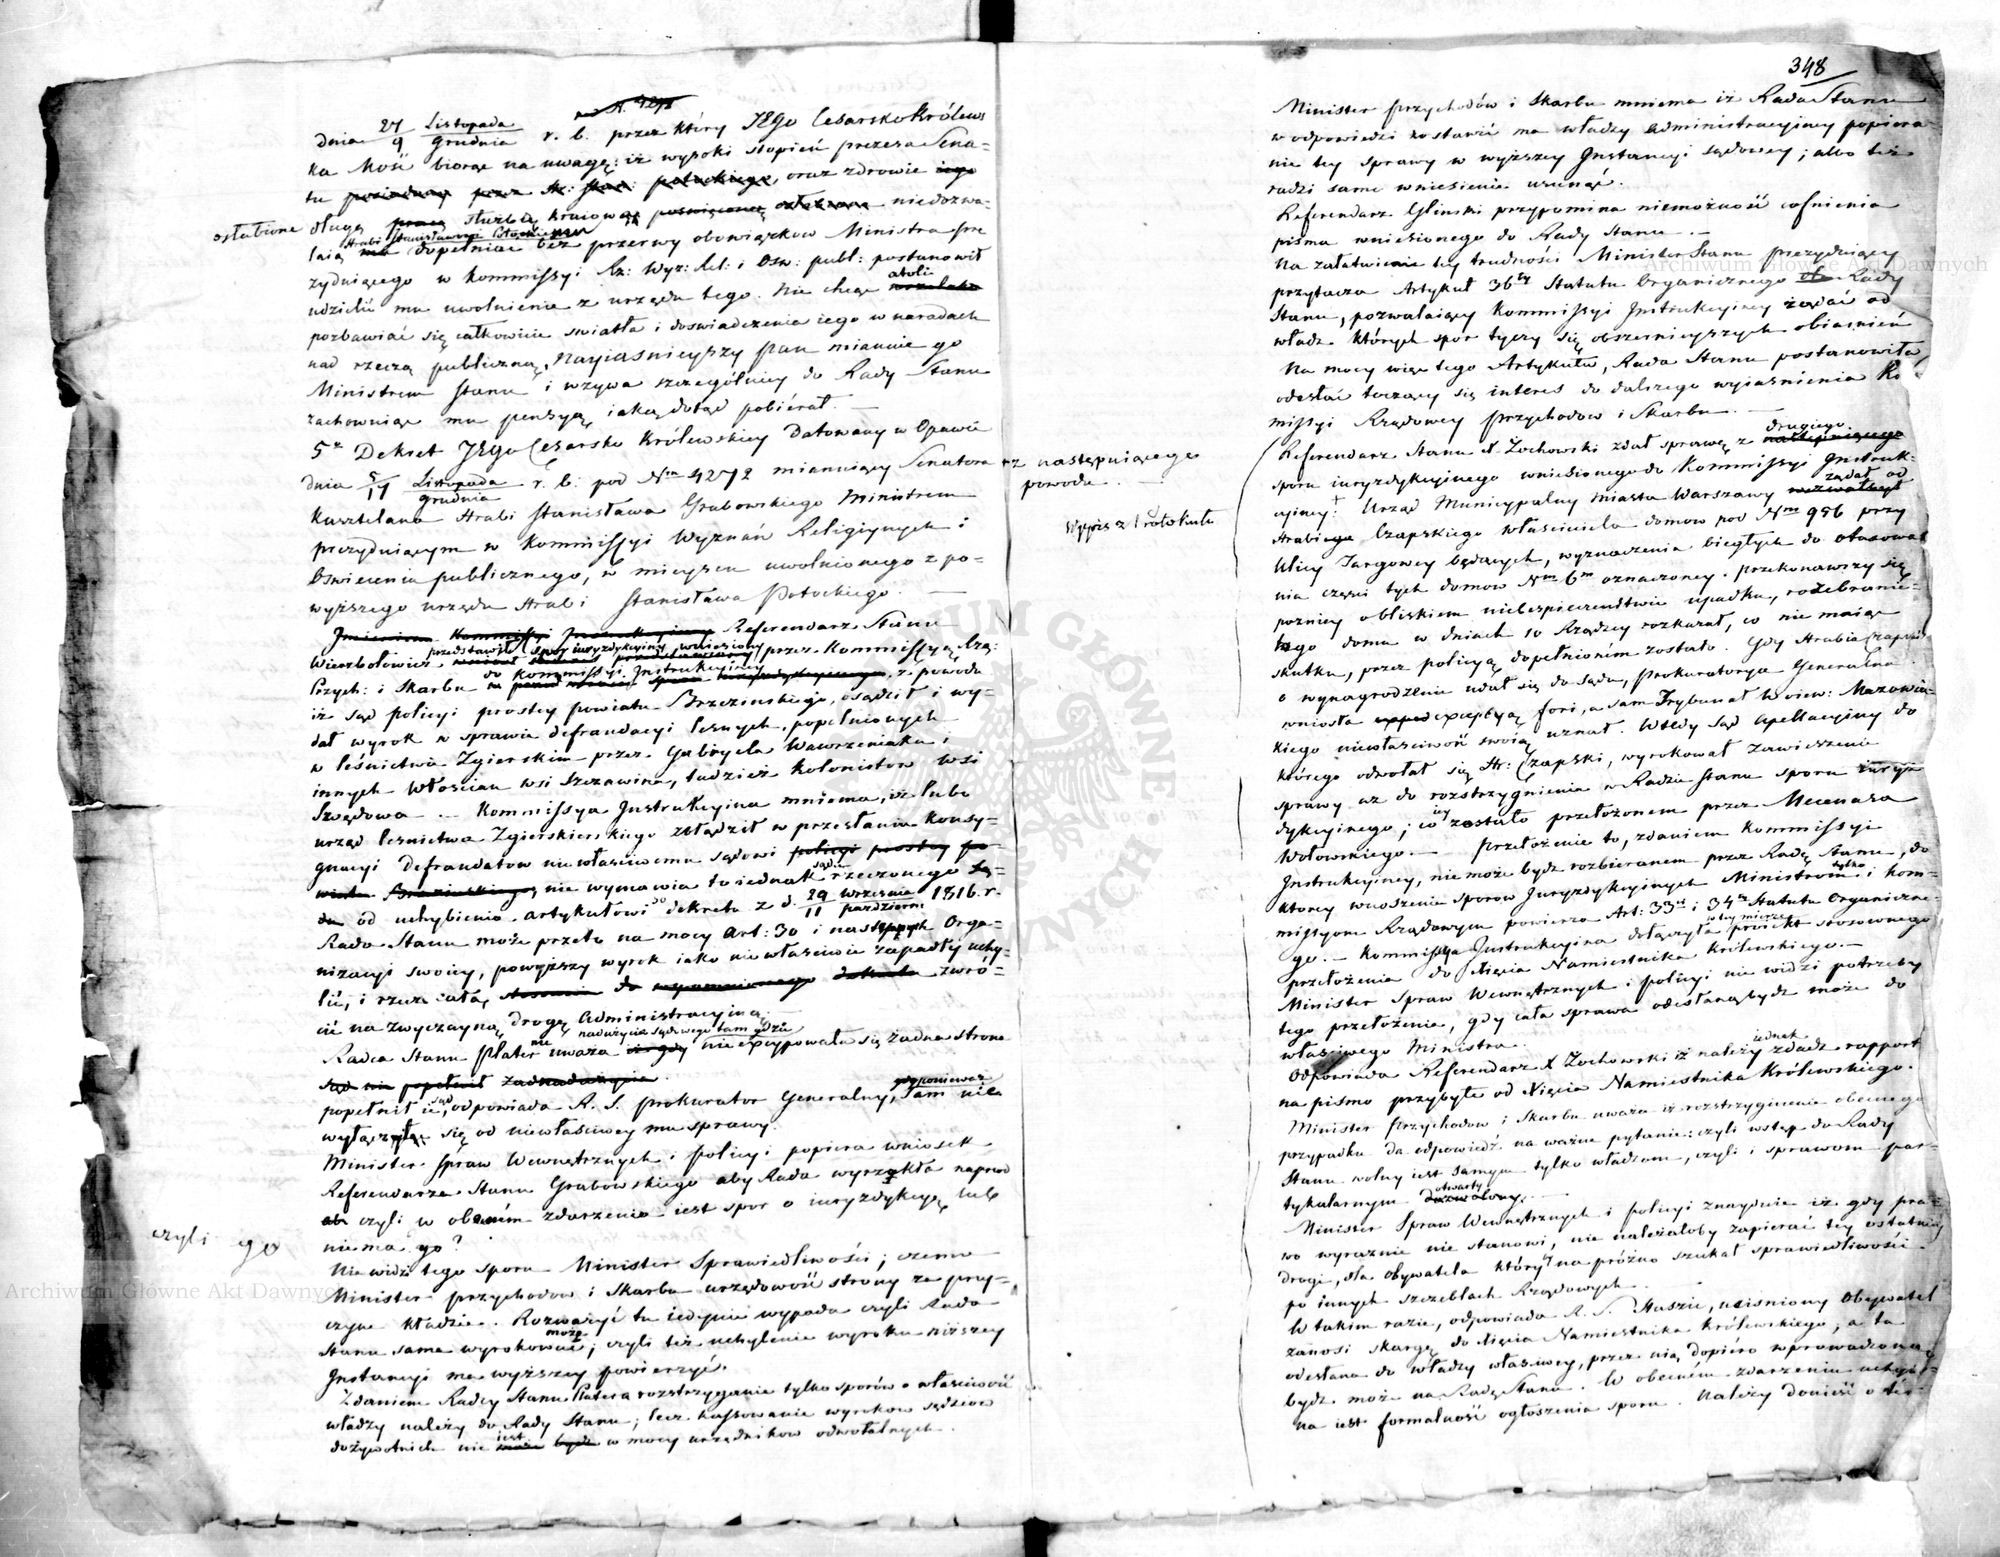 dnia 27/9 Listopada/Grudnia r. b. przez który JEgo Cesarsko Królews
ka Mość biorąc na uwagę: iż wysoki stopień prezesa Sena-
tu posiadany przez Hr: Stan: Potockiego, oraz zdrowie iego
osłabione długą pracą służbą kraiową poświęconą niedozwa-
laią mu Hrabi Stanisławowi Potockiemu dopełniać bez przerwy obowiązków Ministra pre
zyduiącego w Kommissyi Rz: Wyz: Rel: i Ośw: publ: postanowił
udzielić mu uwolnienie z urzędu tego. Nie chcąc atoli
pozbawiać się całkowicie światła i doświadczenia iego w naradach
nad rzeczą publiczną, Nayiaśnieyszy Pan mianuie go
Ministrem Stanu i wzywa szczególniey do Rady Stanu
zachowuiąc mu pensyą iaką dotąd pobierał. —
5e Dekret JEgo Cesarsko Królewskiey Datowany w Opawie
dnia 5/17 Listopada/Grudnia r. b: pod Nrm 4272 mianuiący Senatora
Kasztelana Hrabi Stanisława Grabowskiego Ministrem
prezyduiącym w Kommissyi Wyznań Religiynych i
Oświecenia publicznego, w mieyscu uwolnionego z po-
wyższego urzędu Hrabi Stanisława Potockiego. —
Imieniem Kommissyi Instrukcyiney Referendarz Stanu
Wierzbołowicz przedstawił spor iuryzdykcyiny wniesiony przez Kommissyą Rzą:
Przych: i Skarbu do Kommissyi Instrukcyiney z powodu
iż sąd policyi prostey powiatu Brzezinskiego, osądził i wy-
dał wyrok w sprawie defraudacyi leśnych, popełnionych
w leśnictwie Zgierskim przez Gabryela Wawrzeniaka i
innych włościan wsi Szczawina, tudzież kolonistów wsi
Swędowa. — Kommissya Instrukcyina mniema, iż lubo
urząd leśnictwa Zgierskiego zbłądził w przesłaniu konsy-
gnacyi defraudatów niewłaściwemu sądowi policyi prostey po-
wiatu Brzezinskiego, nie wymawia to iednak sądu rzeczonego
od uchybienia artykułowi do dekretu z d. 29/11 Września/Paździer: 1816 r.
Rada Stanu może przeto na mocy Art: 30 i następnych Orga-
nizacyi swoiey, powyższy wyrok iako niewłaściwie zapadły uchy-
lić, i rzecz całą stosownie do wspomnionego dekretu zwró-
cić na zwyczayną drogę Administracyiną.
Radca Stanu Plater nie uważa nadużycia sądowego tam gdzie nie excypowała się żadna strona
sąd nie popełnił żadnadużycia.
popełnił ie sąd, odpowiada R. S. Prokurator Generalny, gdy ponieważ sam nie
wyłączył się od niewłaściwey mu sprawy.
Minister Spraw Wewnętrznych i Policyi popiera wniosek
Referendarza Stanu Grabowskiego aby Rada wyrzekła naprzód
czyli w obecném zdarzeniu iest spor o iuryzdykcyą lub
czyli go
niema go?
Nie widzi tego sporu Minister Sprawiedliwości; czemu
Minister przychodów i Skarbu urzędowość strony za przy-
czynę kładzie. Rozważyć tu iedynie wypada czyli Rada
Stanu sama wyrokować może, czyli też uchylenie wyroku niższey
Instancyi ma wyższey powierzyć.
Zdaniem Radcy Stanu Platera rozstrzyganie tylko sporów o właściwość
władzy należy do Rady Stanu; lecz kassowanie wyroków sędziow
dożywotnich nie iest w mocy urzędników odwołalnych.
z następuiącego
powodu. —
Wypis z Protokułu
348
Minister Przychodów i Skarbu mniema iż Rada Stanu
w odpowiedzi zostawić ma władzy administracyiney popiera-
nie tey sprawy w wyższey Instancyi sądowey; albo też
radzi same wniesienie usunąć.
Referendarz Gliński przypomina niemożność cofnienia
pisma wniesionego do Rady Stanu. —
Na załatwienie tey trudności Minister Stanu prezyduiący
przytacza Artykuł 36ty Statutu Organicznego Rady
Stanu, pozwalaiący Kommissyi Instrukcyiney żądać od
władz których spór tyczy się obszernieyszych obiaśnień
Na mocy więc tego Artykułu, Rada Stanu postanowiła
odesłać toczący się interes do dalszego wyiaśnienia Ko
missyi Rządowey Przychodów i Skarbu. —
Referendarz Stanu X. Żochowski zdał sprawę z drugiego
sporu iuryzdykcyinego wniesionego do Kommissyi Instruk-
cyiney. Urząd Municypalny miasta Warszawy żądał od
Hrabiego Czapskiego właściciela domów pod Nrm 956 przy
Ulicy Targowey będących, wyznaczenia biegłych do otaxowa-
nia części tych domów Nrm 6m oznaczoney. przekonawszy się
pozniey o bliskiem niebezpieczeństwie upadku, rozebranie
tego domu w dniach 10 Rządcy rozkazał, co nie maiąc
skutku, przez policyą dopełnioném zostało. Gdy Hrabia Czapski
o wynagrodzenie udał się do sądu, Prokuratorya Generalna
wniosła excepcyą fori, a sam Trybunał Woiew: Mazowie-
kiego niewłaściwość swoią uznał. Wtedy sąd Apellacyiny do
którego odwołał się Hr: Czapski, wyrokował zawieszenie
sprawy aż do rozstrzygnienia w Radzie Stanu sporu iuryz-
dykcyinego; co iey zostało przełożonem przez Mecenasa
Wołowskiego. — Przełożenie to, zdaniem Kommissyi
Instrukcyiney, nie może bydź rozbieranem przez Radę Stanu, do
ktorey wnoszenie sporów Juryzdykcyinych Ministrom tylko i Kom-
missyom Rządowym powierza Art: 33ci i 34ty Statutu Organiczne-
go. — Kommissya Instrukcyina dołączyła w tey mierze proiekt stosownego
przełożenia do Xięcia Namiestnika Królewskiego. —
Minister Spraw Wewnętrznych i policyi nie widzi potrzeby
tego przełożenia, gdy cała sprawa odesłaną bydź może do
właściwego Ministra.
Odpowiada Referendarz X Żochowski iż należy iednak zdać rapport
na pismo przybyłe od Xięcia Namiestnika Królewskiego.
Minister Przychodów i Skarbu uważa iż rozstrzygnienie obecnego
przypadku da odpowiedź na ważne pytanie: czyli wstęp do Rady
Stanu wolny iest samym tylko władzom, czyli i sprawom par-
tykularnym otwarty. —
Minister Spraw Wewnętrznych i policyi znayduie iż gdy pra-
wo wyraźnie nie stanowi, nie należałoby zapierać tey ostatniey
drogi, dla Obywatela który na próżno szukał sprawiedliwości
po innych szczeblach Rządowych.
W takim razie, odpowiada R. S. Staszic, uciśniony Obywatel
zanosi skargę do Xięcia Namiestnika Królewskiego; a ta
odesłana do władzy właściwey, przez nią dopiero wprowadzoną
bydź może na Radę Stanu. W obecném zdarzeniu uchybio-
na iest formalność ogłoszenia sporu. Należy donieść o tem